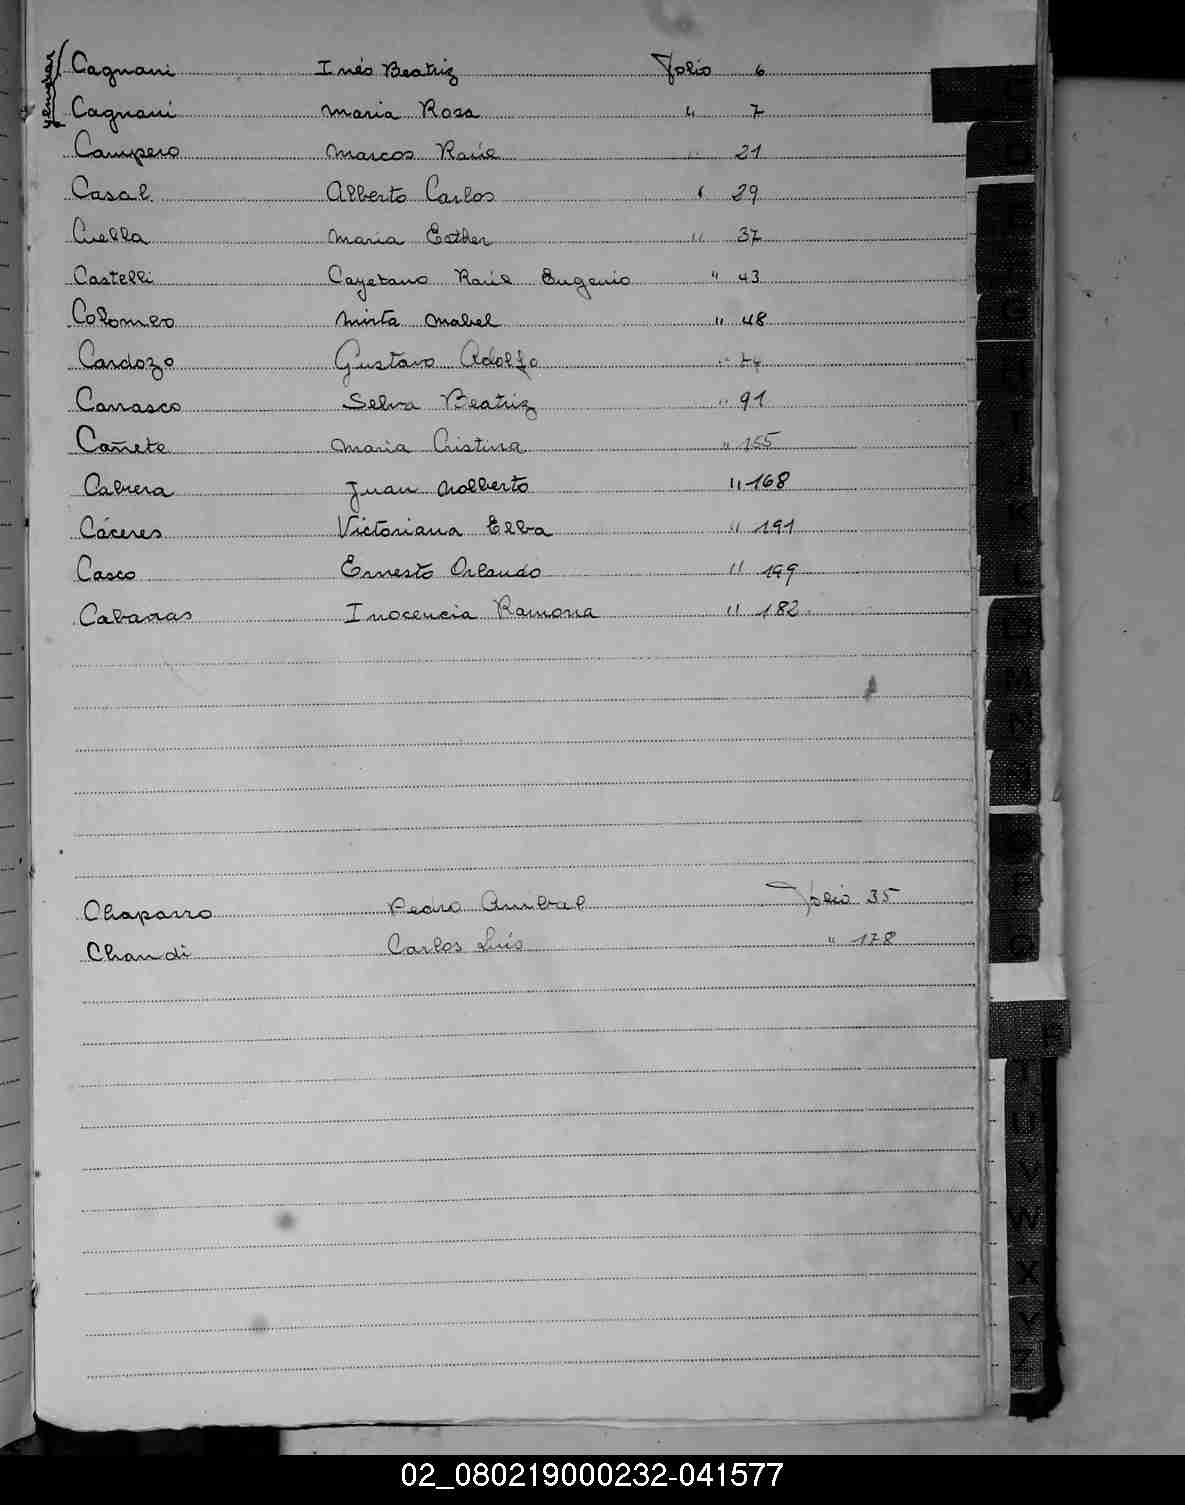 gemelas
Cagnani Inés Beatriz Folio 6
Cagnani Maria Rosa " 7
Campero Marcos Raúl " 21
Casal Alberto Carlos " 29
Cuella Maria Esther " 37
Castelli Cayetano Raúl Eugenio " 43
Colombo Mirta Mabel " 48
Cardozo Gustavo Adolfo "
Carrasco Selva Beatriz " 91
Cañete Maria Cristina " 155
Cabrera Juan Nolberto " 168
Cáceres Victoriana Elba " 191
Casco Ernesto Orlando " 199
Cabañas Inocencia Ramona " 182
Chaparro Pedro Anibal Folio 35
Chandi Carlos Luis " 178
02_080219000232-041577